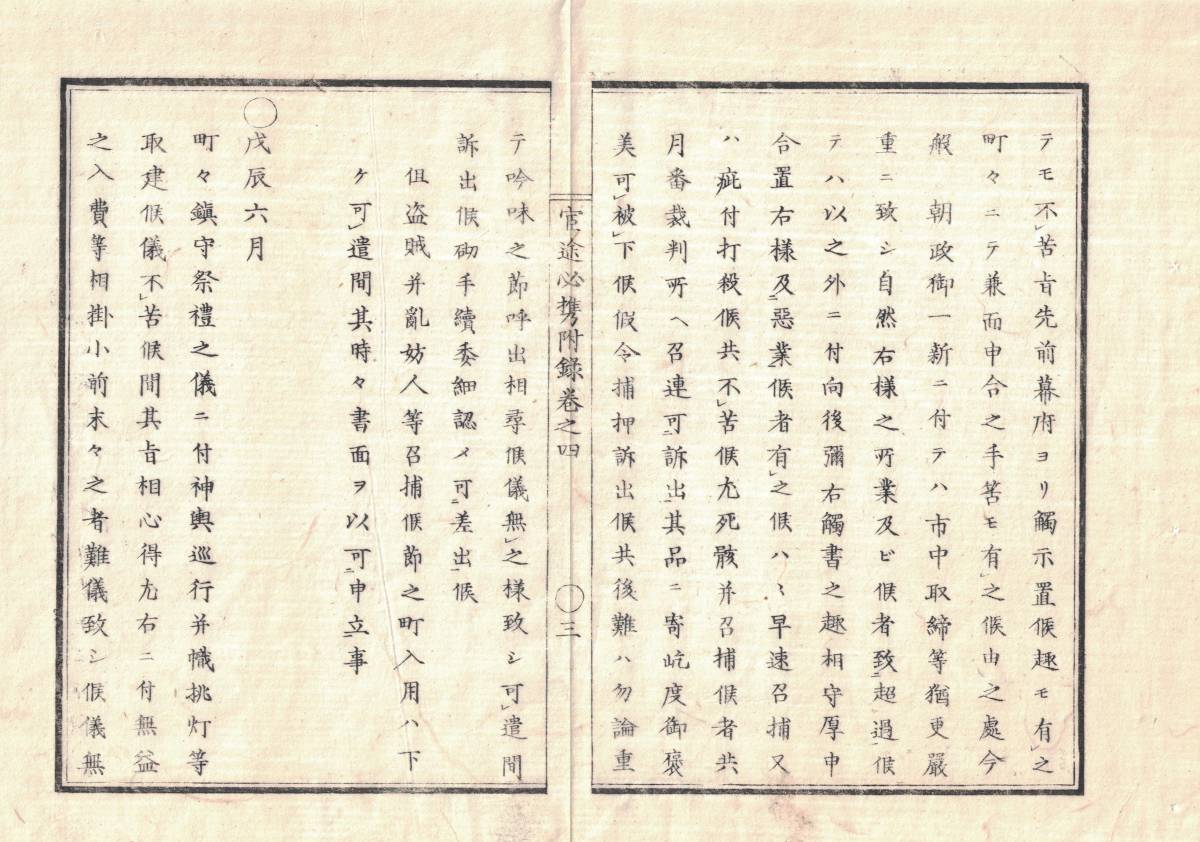 テモ不苦旨先前幕府ヨリ觸示置候趣モ有之
町々ニテ兼而申合之手筈モ有之候由之處今
般　朝政御一新ニ付テハ市中取締等猶更嚴
重ニ致シ自然右様之所業及ビ候者致超過候
テハ以之外ニ付向後彌右觸書之趣相守厚申
合置右様及惡業候者有之候ハヽ早速召捕又
ハ疵付打殺候共不苦候尤死骸并召捕候者共
月番裁判所ヘ召連可訴出其品ニ寄屹度御襃
美可被下候假令捕押訴出候共後難ハ勿論重
官途必携附録巻之四　〇三
テ吟味之節呼出相尋候儀無之様致シ可遣間
訴出候砌手續委細認メ可差出候
但盗賊并亂妨人等召捕候節之町入用ハ下
ケ可遣間其時々書面ヲ以可申立事
〇戊辰六月
町々鎮守祭禮之儀ニ付神輿巡行并幟挑灯等
取建候儀不苦候間其旨相心得尤右ニ付無益
之入費等相掛小前末々之者難儀致シ候儀無